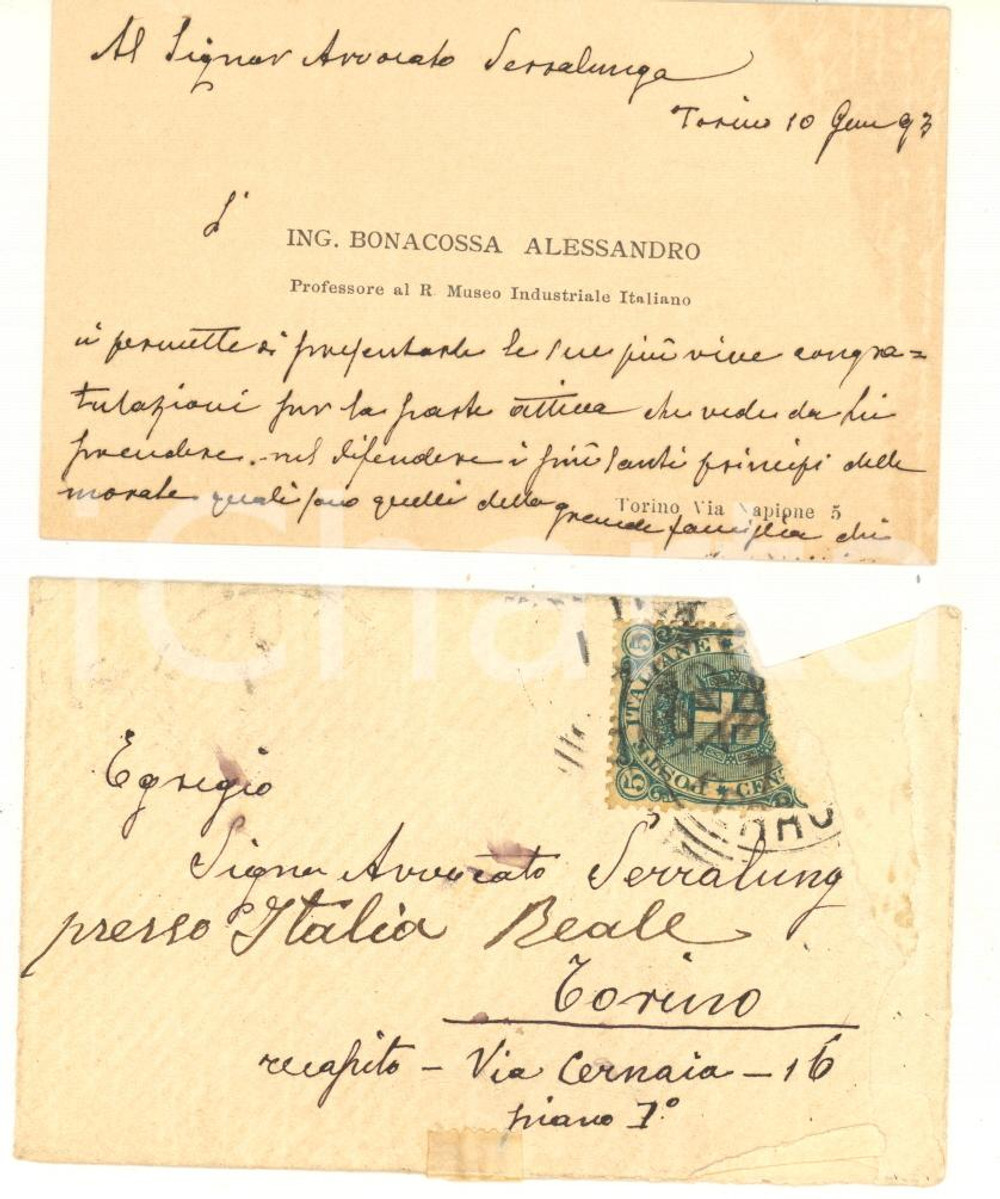 Al Signor Avvocato Serralunga
Torino 10 Genn 93
L'
ING. BONACOSSA ALESSANDRO
Professore al R. Museo Industriale Italiano
si permette di presentarle le sue più vive congra=
tulazioni per la parte attiva che vede da Lei
prendere nel difendere i più santi principi della
morale quali sono quelli della grande famiglia
Torino Via Napione 5
iCharta
5 POSTE ITALIANE
5 CEN
Egregio
Signor Avvocato Serralung
presso Italia Reale
Torino
recapito - Via Cernaia - 16
piano 1°